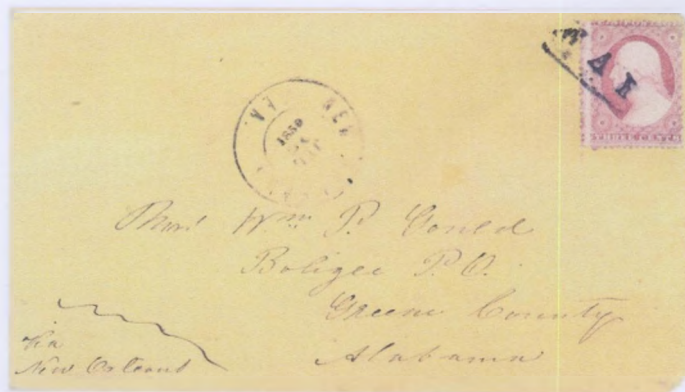 WAY
THREE CENTS
NEW
LA.
1859
Mrs. Wm. P. Gould
Boligee P.O.
Greene County
Alabama
Via
New Orleans